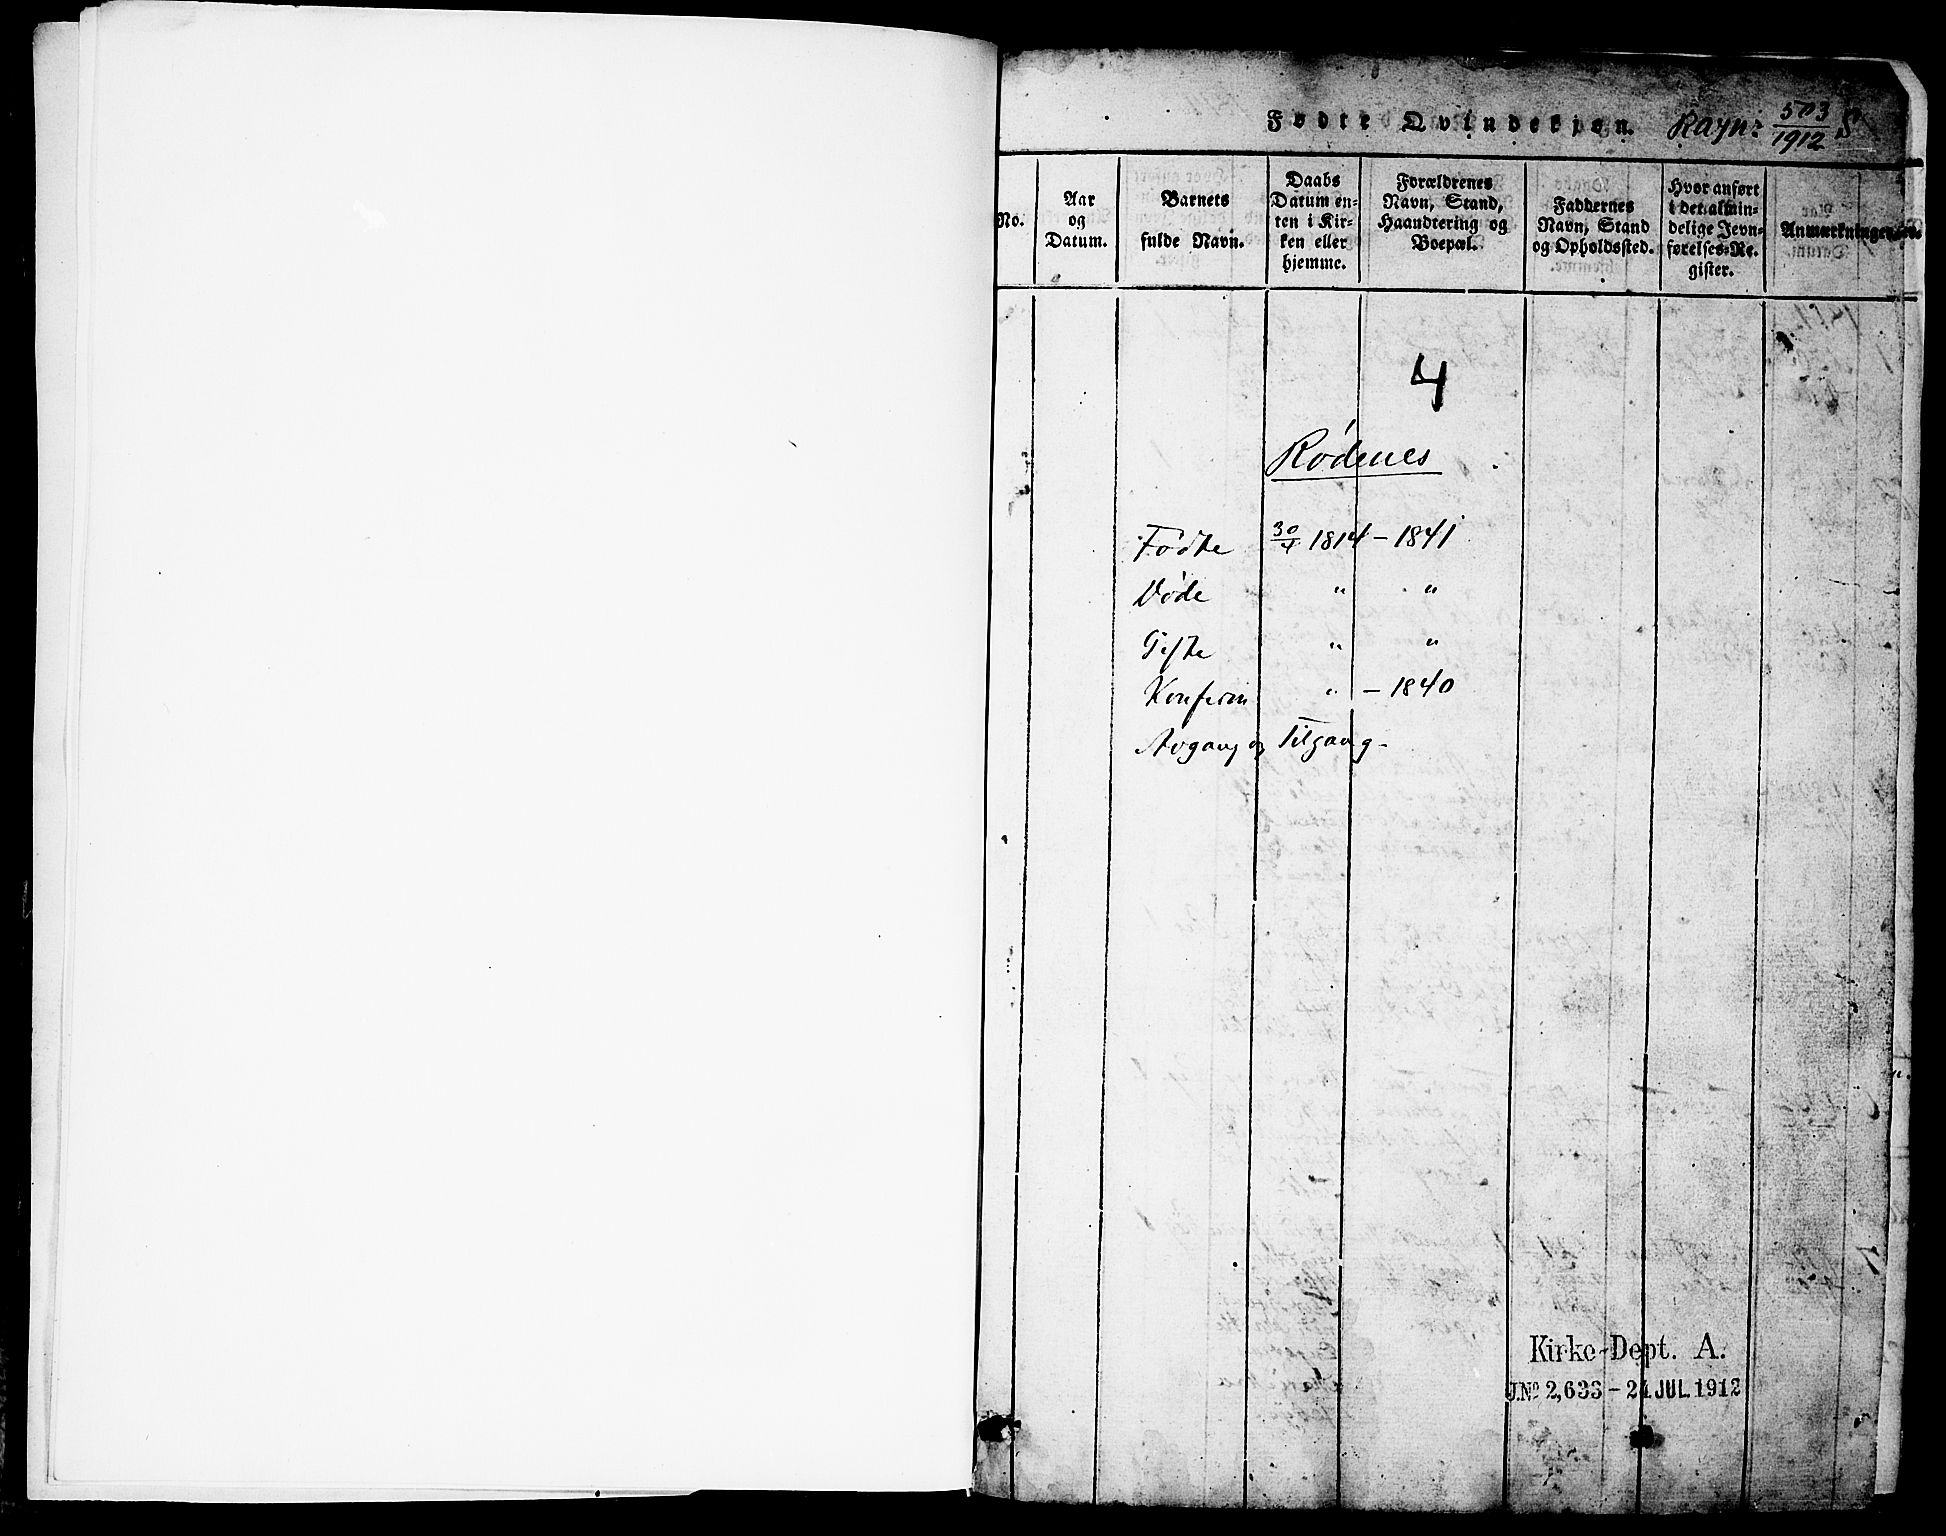 Fødte Qvindekjøn. 503
1912
No.
Aar
og
Datum.
Barnets
fulde Navn.
Daabs
Datum en-
ten i Kir-
ken eller
hjemme.
Forældrenes
Navn, Stand,
Haandtering og
Boepæl.
Faddernes
Navn, Stand
og Opholdssted.
Hvor anført
i det almin-
delige Jevn-
førelses-Re-
gister.
Anmærkninger.
4
Rødenes
Fødte 30/4 1814 - 1841
Døde " "
Gifte " "
Konfirm " - 1840
Avgang og Tilgang -
Kirke-Dept. A.
J.No 2,633 - 24 JUL. 1912